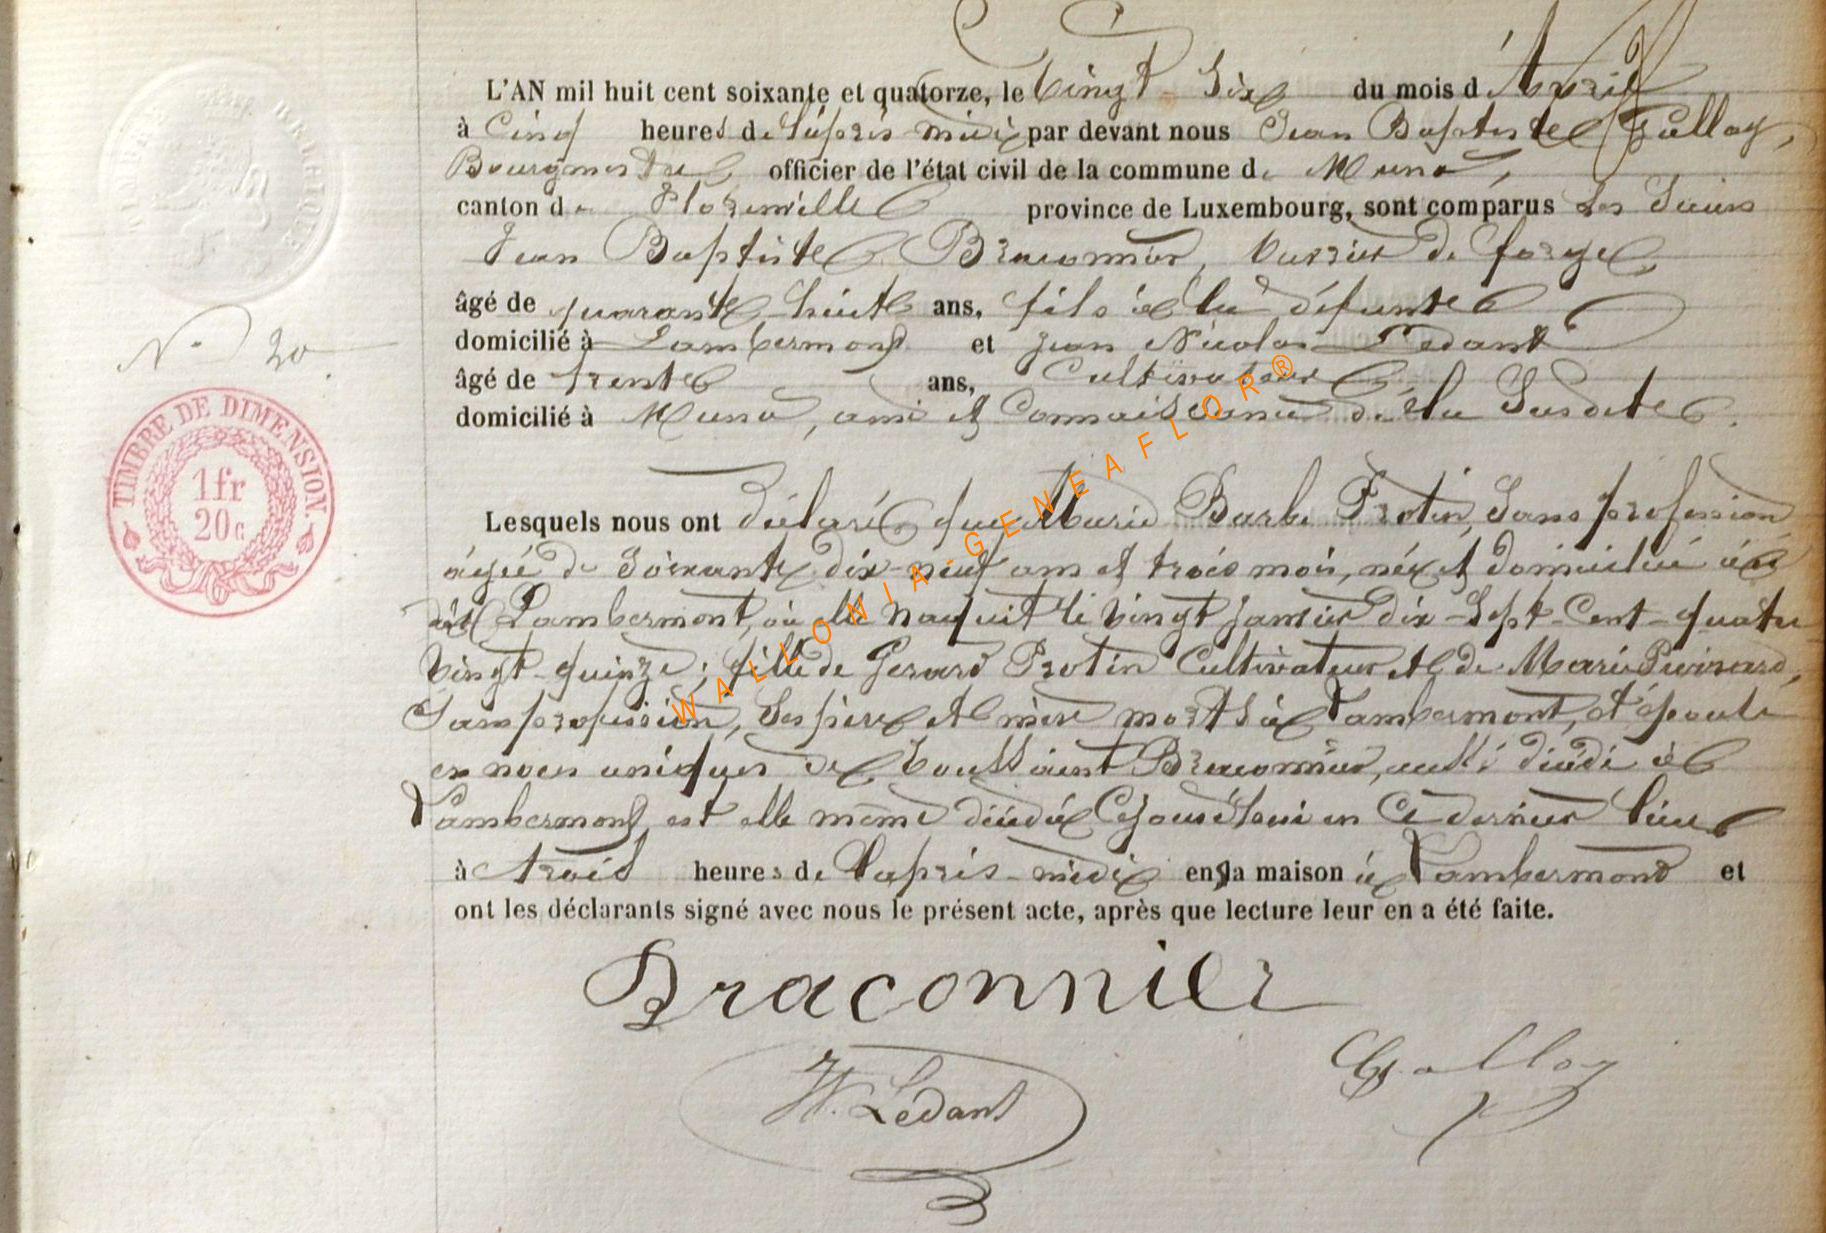 L'AN mil huit cent soixante et quatorze, le Vingt Six du mois d'Avril
à Cinq heures de l'après-midi par devant nous Jean Baptiste Galloy,
Bourgmestre officier de l'état civil de la commune de Muno,
canton de Florenville province de Luxembourg, sont comparus Les Sieurs
Jean Baptiste Braconnier, ouvrier de forge,
âgé de quarante huit ans, fils à la défunte
domicilié à Lambermont et Jean Nicolas Ledant
âgé de trente ans, Cultivateur,
domicilié à Muno, ami et Connaissance de la Susdite.
Lesquels nous ont déclaré que Marie Barbe Protin, Sans profession
âgée de Soixante dix-neuf ans et trois mois, née et domiciliée à
dit Lambermont, où elle naquit le vingt Janvier dix-Sept-Cent-quatre
vingt-quinze; fille de Gerard Protin Cultivateur et de Marie
Sans profession, Ses père et mère morts à Lambermont, et épouse
en noces uniques de Toussaint Braconnier, aussi décédé à
Lambermont, est elle même décédée Cejourd'hui en Ce dernier lieu
à trois heures de l'après-midi en sa maison à Lambermont et
ont les déclarants signé avec nous le présent acte, après que lecture leur en a été faite.
Braconnier
N. Ledant
Galloy
N° 20
TIMBRE DE DIMENSION.
1fr
20c
WALLONIA-GENEAFLOR®